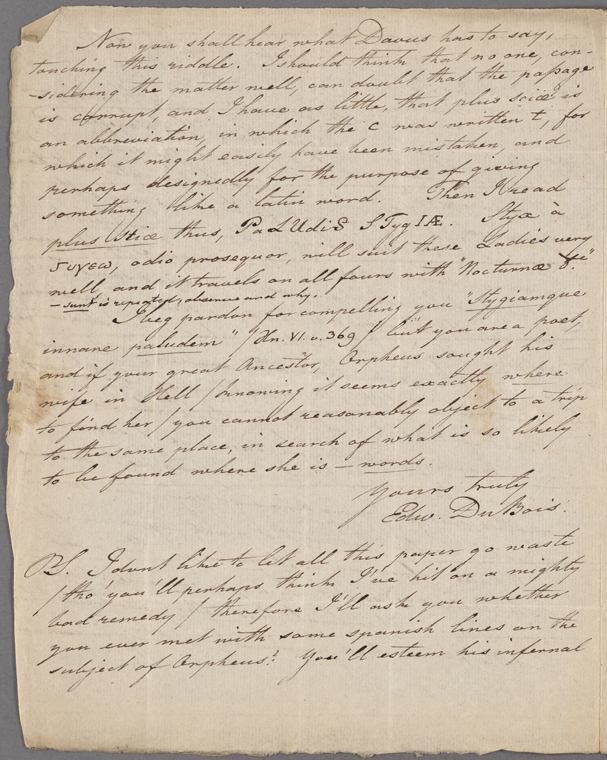 Now you shall hear what Davus has to say,
touching this riddle. I should think that no one, con-
-sidering the matter well, can doubt that the passage
is corrupt, and I have as little, that plus sciæ is
an abbreviation, in which the c was written t, for
which it might easily have been mistaken, and
perhaps designedly for the purpose of giving
something like a latin word. Then I read
plus Stiæ thus, PaLUdiS STygIÆ. Styx à
στυγεω, odio prosequor, will suit these Ladies very
well, and it travels on all fours with "Nocturnæ &c"
- sunt is repeated, observe and why.
I beg pardon for compelling you "Stygiamque
innare paludem" / Æn. VI. v. 369 / but you are a poet,
and if your great Ancestor, Orpheus sought his
wife in Hell / knowing it seems exactly where
to find her / you cannot reasonably object to a trip
to the same place, in search of what is so likely
to be found where she is — words.
Yours truly
Edw. DuBois.
PS. I dont like to let all this paper go waste
/ tho' you'll perhaps think I've hit on a mighty
bad remedy / therefore I'll ask you whether
you ever met with some spanish lines on the
subject of Orpheus? You'll esteem his infernal